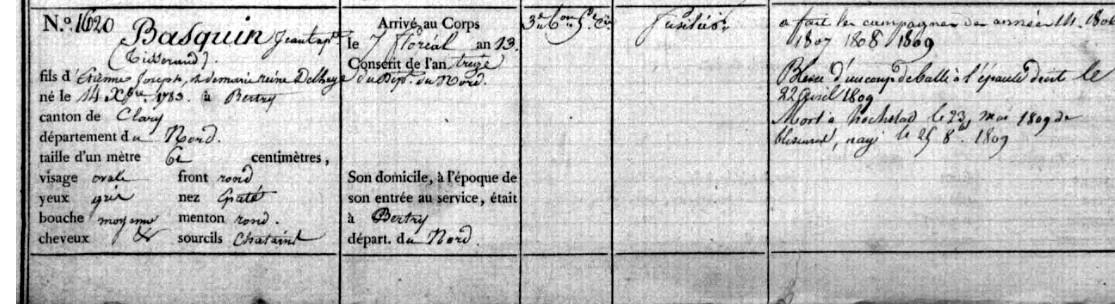 N.º 1620 Basquin Jean bapte
(Tisserand).
fils d'Etienne Joseph, & de marie reine Delhaye
né le 14 Xbre. 1783. à Bertry
canton de Clary
département du Nord.
taille d'un mètre 61 centimètres,
visage ovale front rond
yeux gris nez Epaté
bouche moyenne menton rond.
cheveux & sourcils Chatains
Arrivé au Corps
le 7 floréal an 13.
Conscrit de l'an treize
du Dépt. du Nord.
Son domicile, à l'époque de
son entrée au service, était
à Bertry
départ. du Nord.
3e. Bon. 5e. Cie.
fusilier
a fait les campagnes des années 14. 1806
1807 1808 1809
Blessé d'un coup de balle à l'épaule droit le
22 avril 1809
Mort à hochstad le 23 mai 1809 de
blessures, rayé le 25 8bre 1809